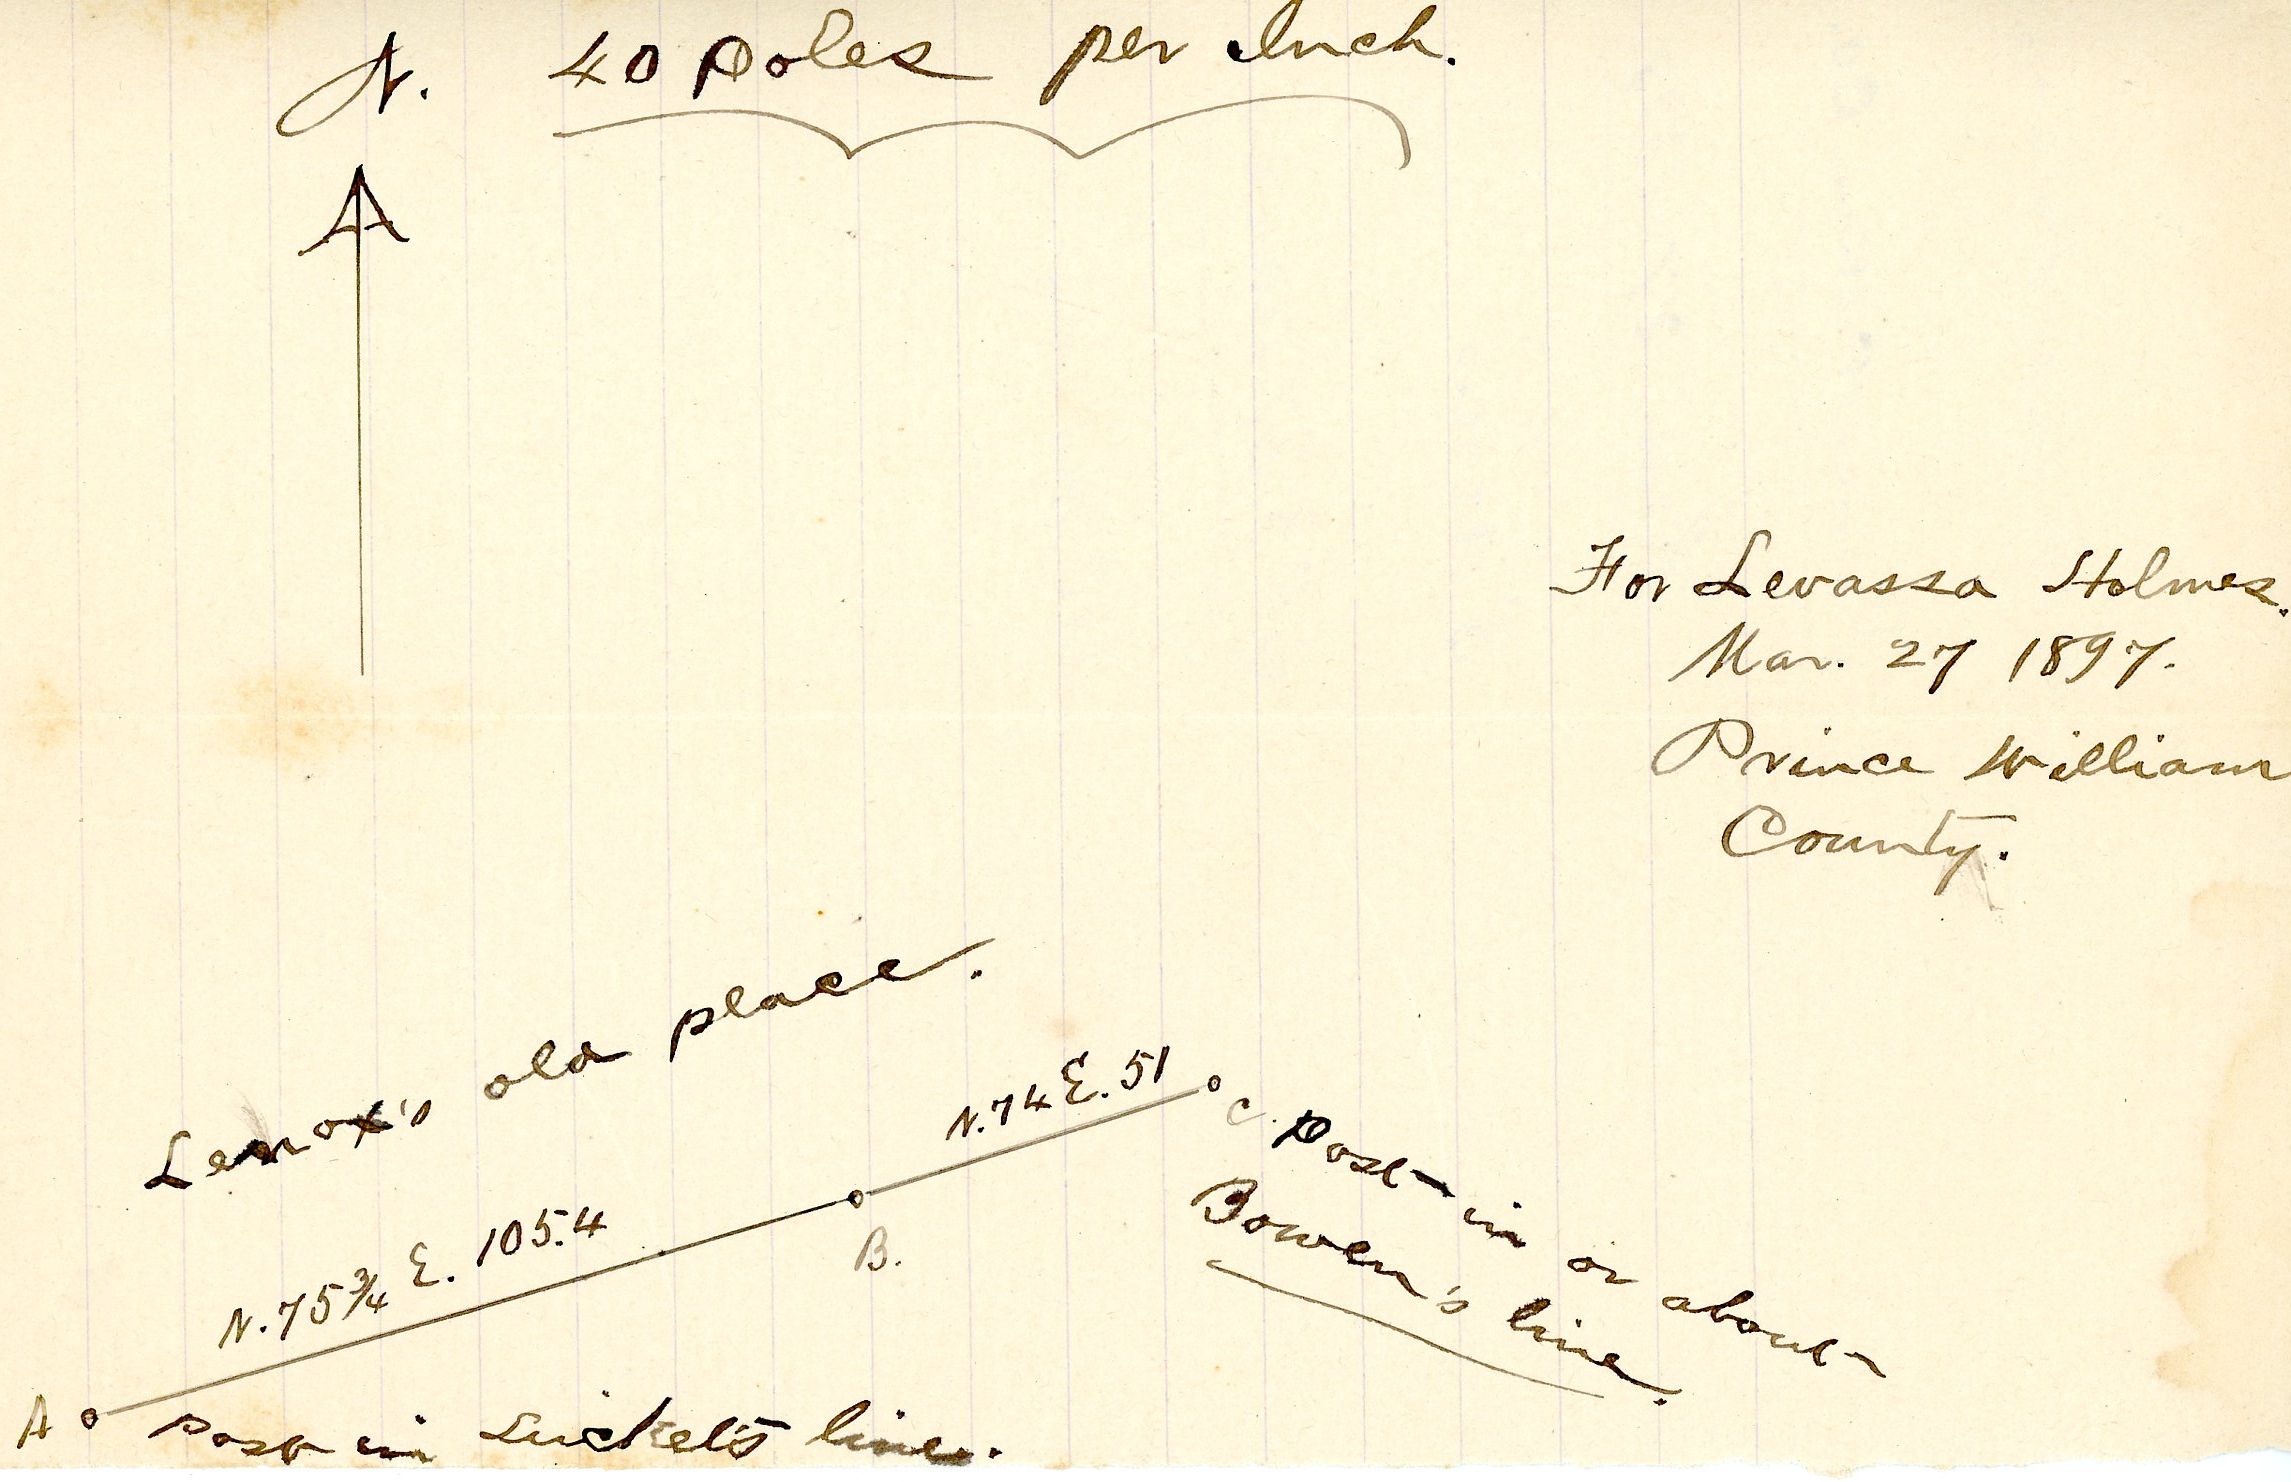 N. 40 Poles per Inch.
For Levassa Holmes.
Mar. 27 1897.
Prince William
County.
Lenox's old place.
N. 74 E. 51
C. Post in or about
Bowen's line.
B.
N. 75 3/4 E. 105.4
A Post in line.